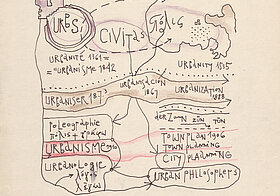 URBS
CIVITAS
πόλις
URBANITÉ 1161
URBANITY 1815
= "URBANISME 1842
URBANISACIÓN
1867
URBANISER 1873
URBANIZATION
1888
PALEOGRAPHIE
der ZAUN ZŪN TŪN
TOWN PLAN 1906
URBANISME
TOWN PLANNING
CITY PLANNING
URBANOLOGIE
λόγος
λέγω
URBAN PHILOSOPHERS